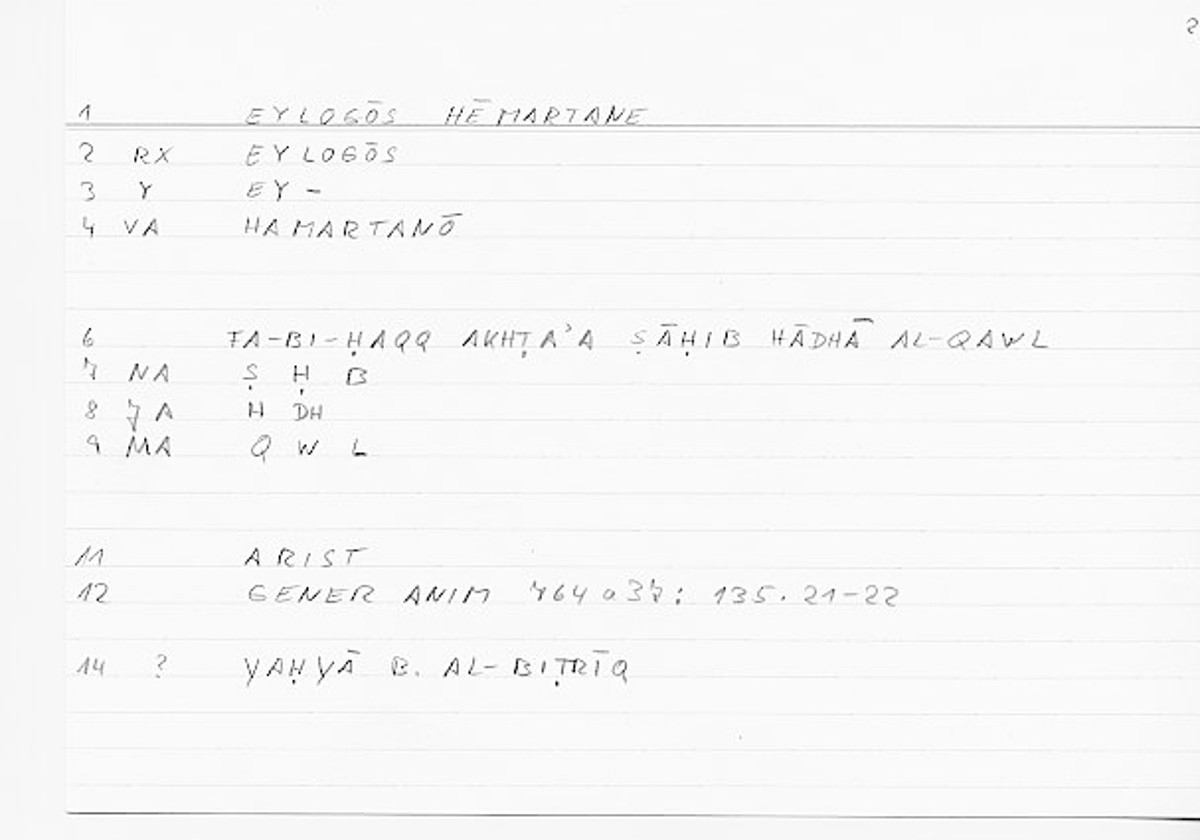 2
1 EYLOGŌS HĒMARTANE
2 RX EYLOGŌS
3 Y EY-
4 VA HAMARTANŌ
6 FA-BI-ḤAQQ AKHṬAʾA ṢĀḤIB HĀDHĀ AL-QAWL
7 NA Ṣ Ḥ B
8 JA H DH
9 MA Q W L
11 ARIST
12 GENER ANIM 764a37: 135.21-22
14 ? YAḤYĀ B. AL-BIṬRĪQ